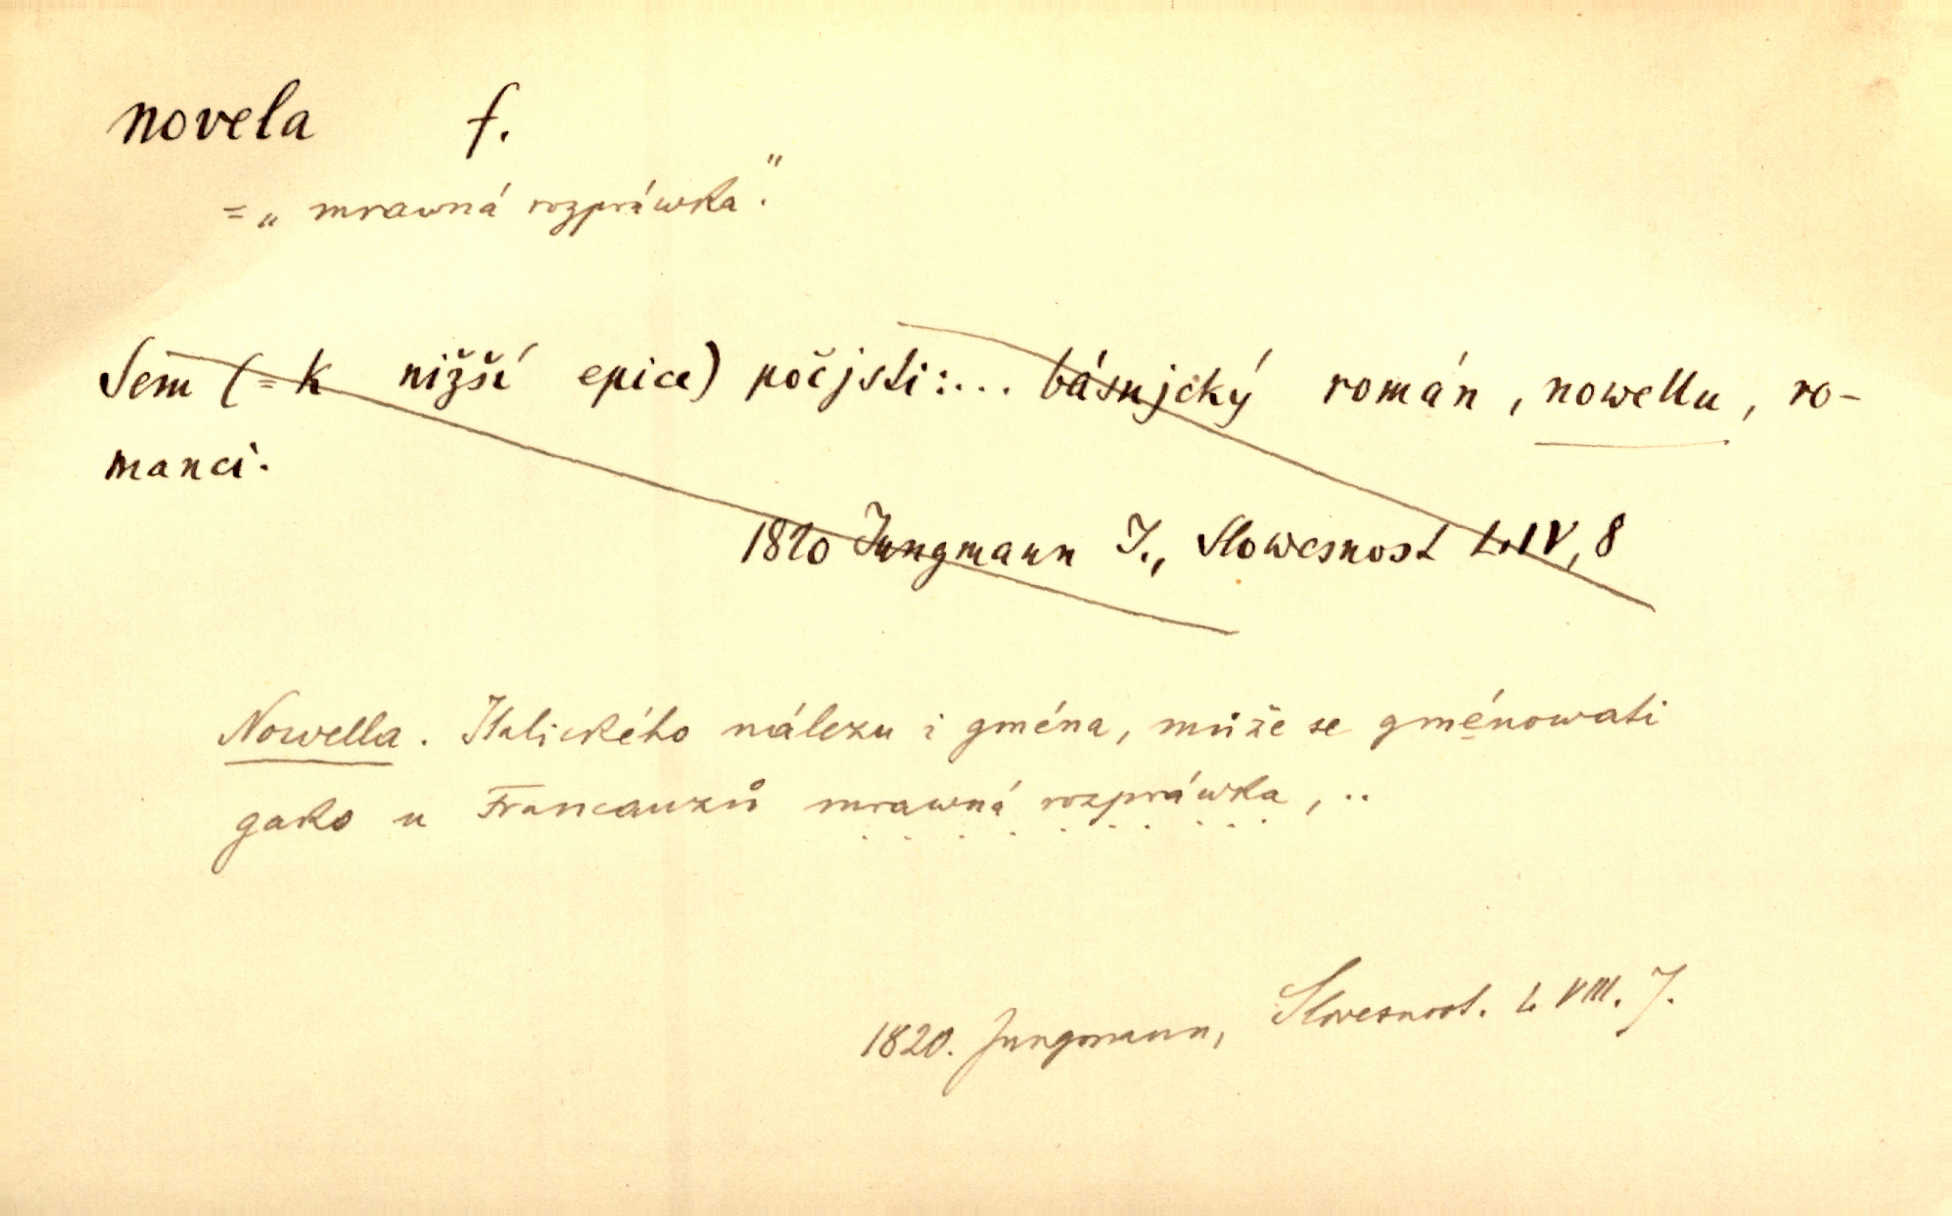 novela f.
= „mrawná rozpráwka".
Sem (= k nižší epice) počjsti:... básnjcký román, nowellu, ro-
manci.
1820 Jungmann J., Slowesnost L. IV, 8
Nowella. Italického nálezu i gména, může se gménowati
gako u Francauzů mrawná rozpráwka, ..
1820. Jungmann, Slovesnost. L VIII. J.